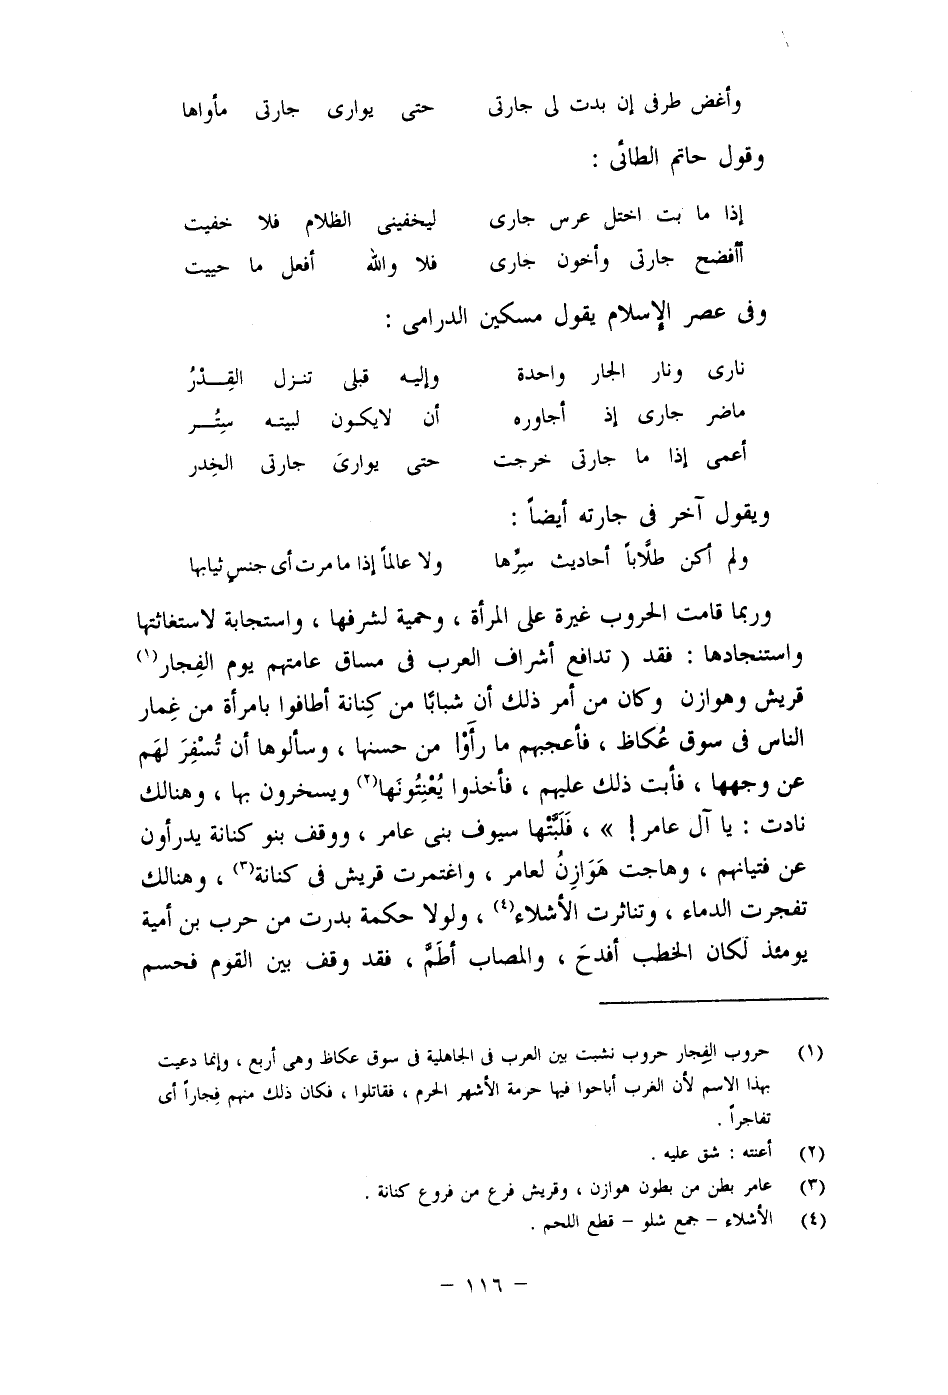 وأغض طرفى إن بدت لى جارتى حتى يوارى جارتى مأواها
وقول حاتم الطائى :
إذا ما بت اختل عرس جارى ليخفينى الظلام فلا خفيت
أأفضح جارتى وأخون جارى فلا والله أفعل ما حييت
وفى عصر الإسلام يقول مسكين الدرامى :
نارى ونار الجار واحدة وإليه قبلى تنـزل القِــدْرُ
ماضر جارى إذ أجاوره أن لايكـون لبيتـه سِتْـــر
أعمى إذا ما جارتى خرجت حتى يوارىَ جارتى الخِدر
ويقول آخر فى جارته أيضاً :
ولم أكن طلَّاباً أحاديث سِرِّها ولا عالماً إذا ما مرت أى جنسٍ ثيابها
وربما قامت الحروب غيرة على المرأة ، وحمية لشرفها ، واستجابة لاستغاثتها
واستنجادها : فقد ( تدافع أشراف العرب فى مساق عامتهم يوم الفِجار(١)
قريش وهوازن وكان من أمر ذلك أن شبابًا من كِنانة أطافوا بامرأة من غِمار
الناس فى سوق عُكاظ ، فأعجبهم ما رأَوْا من حسنها ، وسألوها أن تُسْفِرَ لهَم
عن وجهها ، فأبت ذلك عليهم ، فأخذوا يُعْنِتُونَها(٢) ويسخرون بها ، وهنالك
نادت : يا آل عامر! » ، فَلَبَّتْها سيوف بنى عامر ، ووقف بنو كنانة يدرأون
عن فتيانهم ، وهاجت هَوَازِنُ لعامر ، واغتمرت قريش فى كنانة(٣) ، وهنالك
تفجرت الدماء ، وتناثرت الأشلاء(٤) ، ولولا حكمة بدرت من حرب بن أمية
يومئذ لَكان الخطب أفدحَ ، والمصاب أطَمَّ ، فقد وقف بين القوم فحسم
(١) حروب الفِجار حروب نشبت بين العرب فى الجاهلية فى سوق عكاظ وهى أربع ، وإنما دعيت
بهذا الاسم لأن الغرب أباحوا فيها حرمة الأشهر الحرم ، فقاتلوا ، فكان ذلك منهم فِجاراً أى
تفاجراً .
(٢) أعنته : شق عليه .
(٣) عامر بطن من بطون هوازن ، وقريش فرع من فروع كنانة .
(٤) الأشلاء – جمع شلو – قطع اللحم .
– ١١٦ –